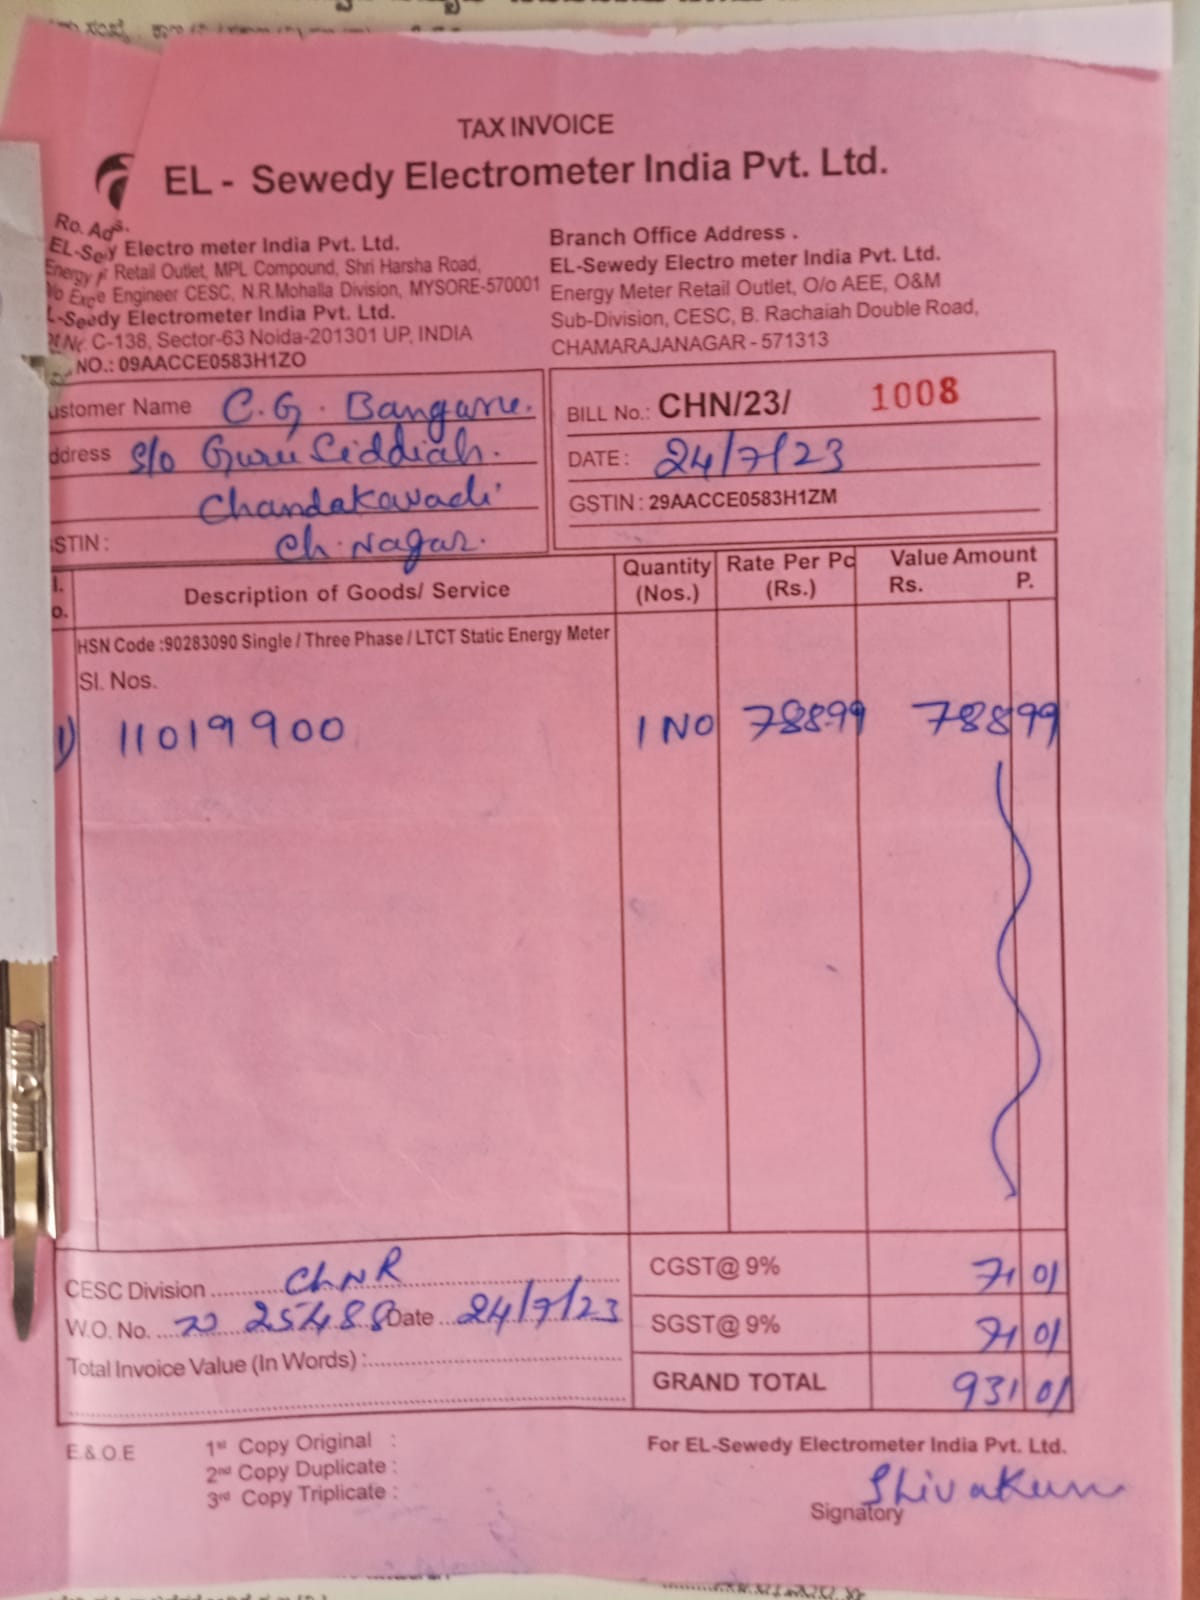 TAX INVOICE
EL - Sewedy Electrometer India Pvt. Ltd.
Ro. Ads.
Electro meter India Pvt. Ltd.
Retail Outlet, MPL Compound, Shri Harsha Road,
Engineer CESC, N.R.Mohalla Division, MYSORE-570001
Electrometer India Pvt. Ltd.
C-138, Sector-63 Noida-201301 UP, INDIA
NO.: 09AACCE0583H1ZO
Branch Office Address .
EL-Sewedy Electro meter India Pvt. Ltd.
Energy Meter Retail Outlet, O/o AEE, O&M
Sub-Division, CESC, B. Rachaiah Double Road,
CHAMARAJANAGAR - 571313
ustomer Name C.G. Bangare.
ddress S/o Guru Siddiah.
Chandakavadi
STIN : Ch. Nagar.
BILL No.: CHN/23/ 1008
DATE : 24/7/23
GSTIN : 29AACCE0583H1ZM
l.
o.
Description of Goods/ Service
Quantity (Nos.)
Rate Per Pc (Rs.)
Value Amount
Rs. P.
HSN Code :90283090 Single / Three Phase / LTCT Static Energy Meter
Sl. Nos.
1) 11019900 1 NO 788.99 788 99
CESC Division ChNR
W.O. No. 25488 Date 24/7/23
Total Invoice Value (In Words) :
CGST@ 9% 71 01
SGST@ 9% 71 01
GRAND TOTAL 931 01
E.& O.E
1st Copy Original :
2nd Copy Duplicate :
3rd Copy Triplicate :
For EL-Sewedy Electrometer India Pvt. Ltd.
Shivakum
Signatory